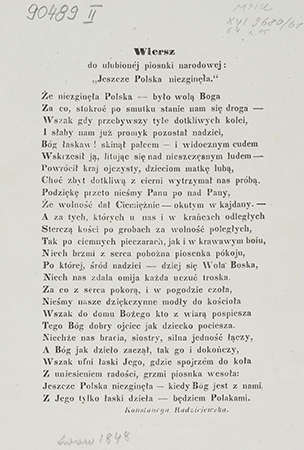 90489 II
MNK
XVI 3680/61
Wiersz
do ulubionéj piosnki narodowej:
„Jeszcze Polska niezginęła.“
Że niezginęła Polska — było wolą Boga
Za co, stokroć po smutku stanie nam się droga —
Wszak gdy przebywszy tyle dotkliwych kolei,
I słaby nam już promyk pozostał nadziei,
Bóg łaskaw! skinął palcem — i widocznym cudem
Wskrzesił ją, litując się nad nieszczęsnym ludem —
Powrócił kraj ojczysty, dzieciom matkę lubą,
Choć zbyt dotkliwą z cierni wytrzymał nas próbą.
Podziękę przeto nieśmy Panu po nad Pany,
Że wolność dał Ciemiężnie — okutym w kajdany. —
A za tych, których u nas i w krańcach odległych
Sterczą kości po grobach za wolność poległych,
Tak po ciemnych pieczarach, jak i w krawawym boiu,
Niech brzmi z serca pobożna piosenka pokoju,
Po której, śród nadziei — dziej się Wola Boska,
Niech nas zdala omija każda uczuć troska.
Za co z serca pokorą, i w pogodzie czoła,
Nieśmy nasze dziękczynne modły do kościoła
Wszak do domu Bożego kto z wiarą pospiesza
Tego Bóg dobry ojciec jak dziecko pociesza.
Niechże nas bracia, siostry, silna jedność łączy,
A Bóg jak dzieło zaczął, tak go i dokończy,
Wszak ufni łaski Jego, gdzie spojrzém do koła
Z uniesieniem radości, grzmi piosnka wesoła:
Jeszcze Polska niezginęła — kiedy Bóg jest z nami
Z Jego tylko łaski dzieła — będziem Polakami.
Konstancya Radziejewska.
Lwów 1848